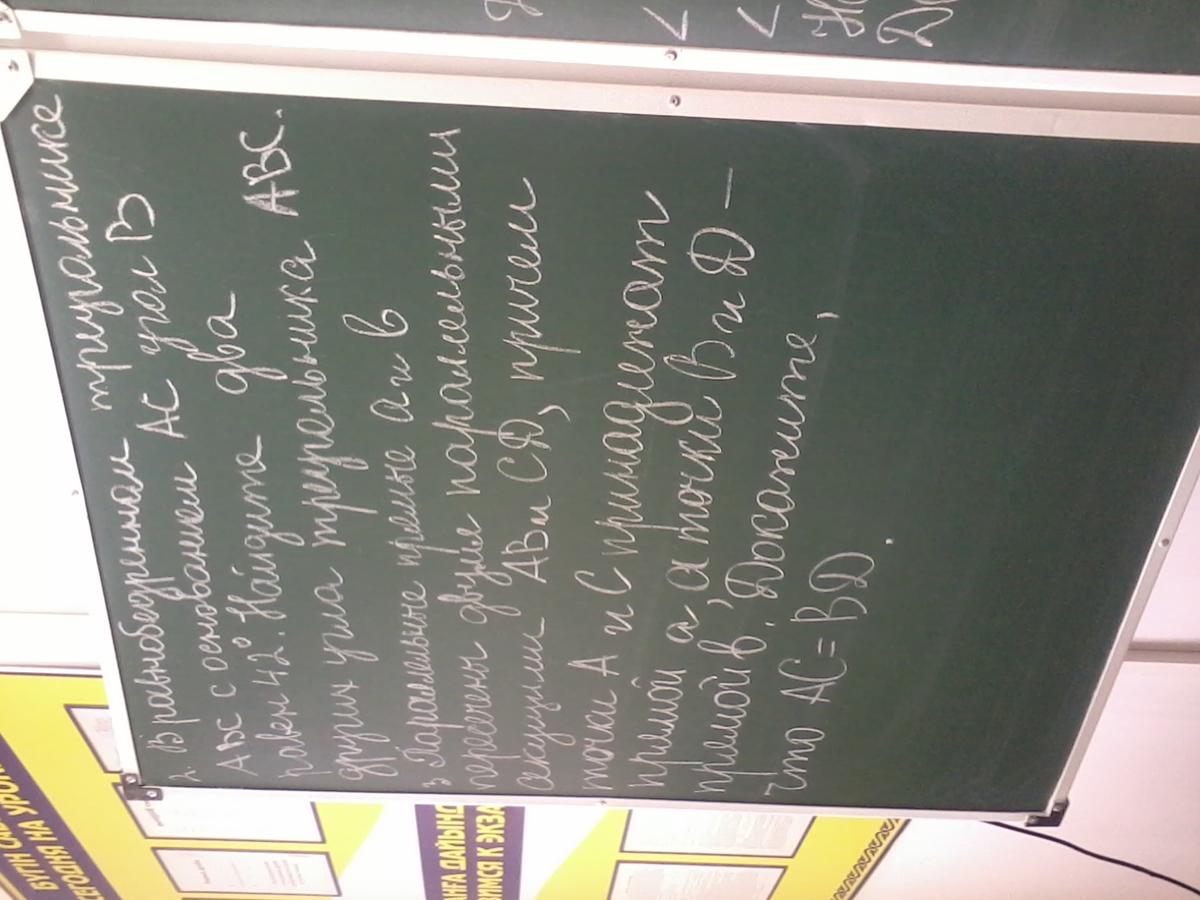 2. В равнобедренном треугольнике
ABC с основанием AC угол B
равен 42°. Найдите два
других угла треугольника ABC.
3 Паралельные прямые a и b
пересечены двумя параллельными
секущими AB и CD, причем
точки A и C принадлежат
прямой a, а точки B и D –
прямой b, Докажите,
что AC = BD.
БҮГІН САБ
СЕГОДНЯ НА УРОК
АНҒА ДАЙЫНД
ВИМСЯ К ЭКЗА